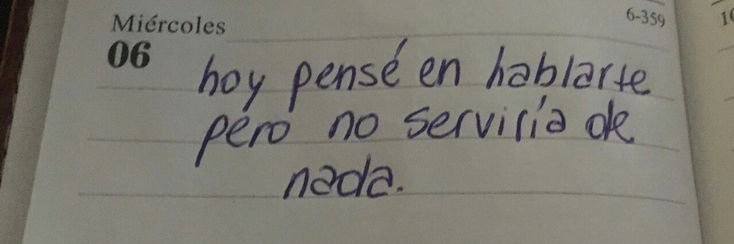 Miércoles 6-359 1
06
hoy pensé en hablarte
pero no serviría de
nada.